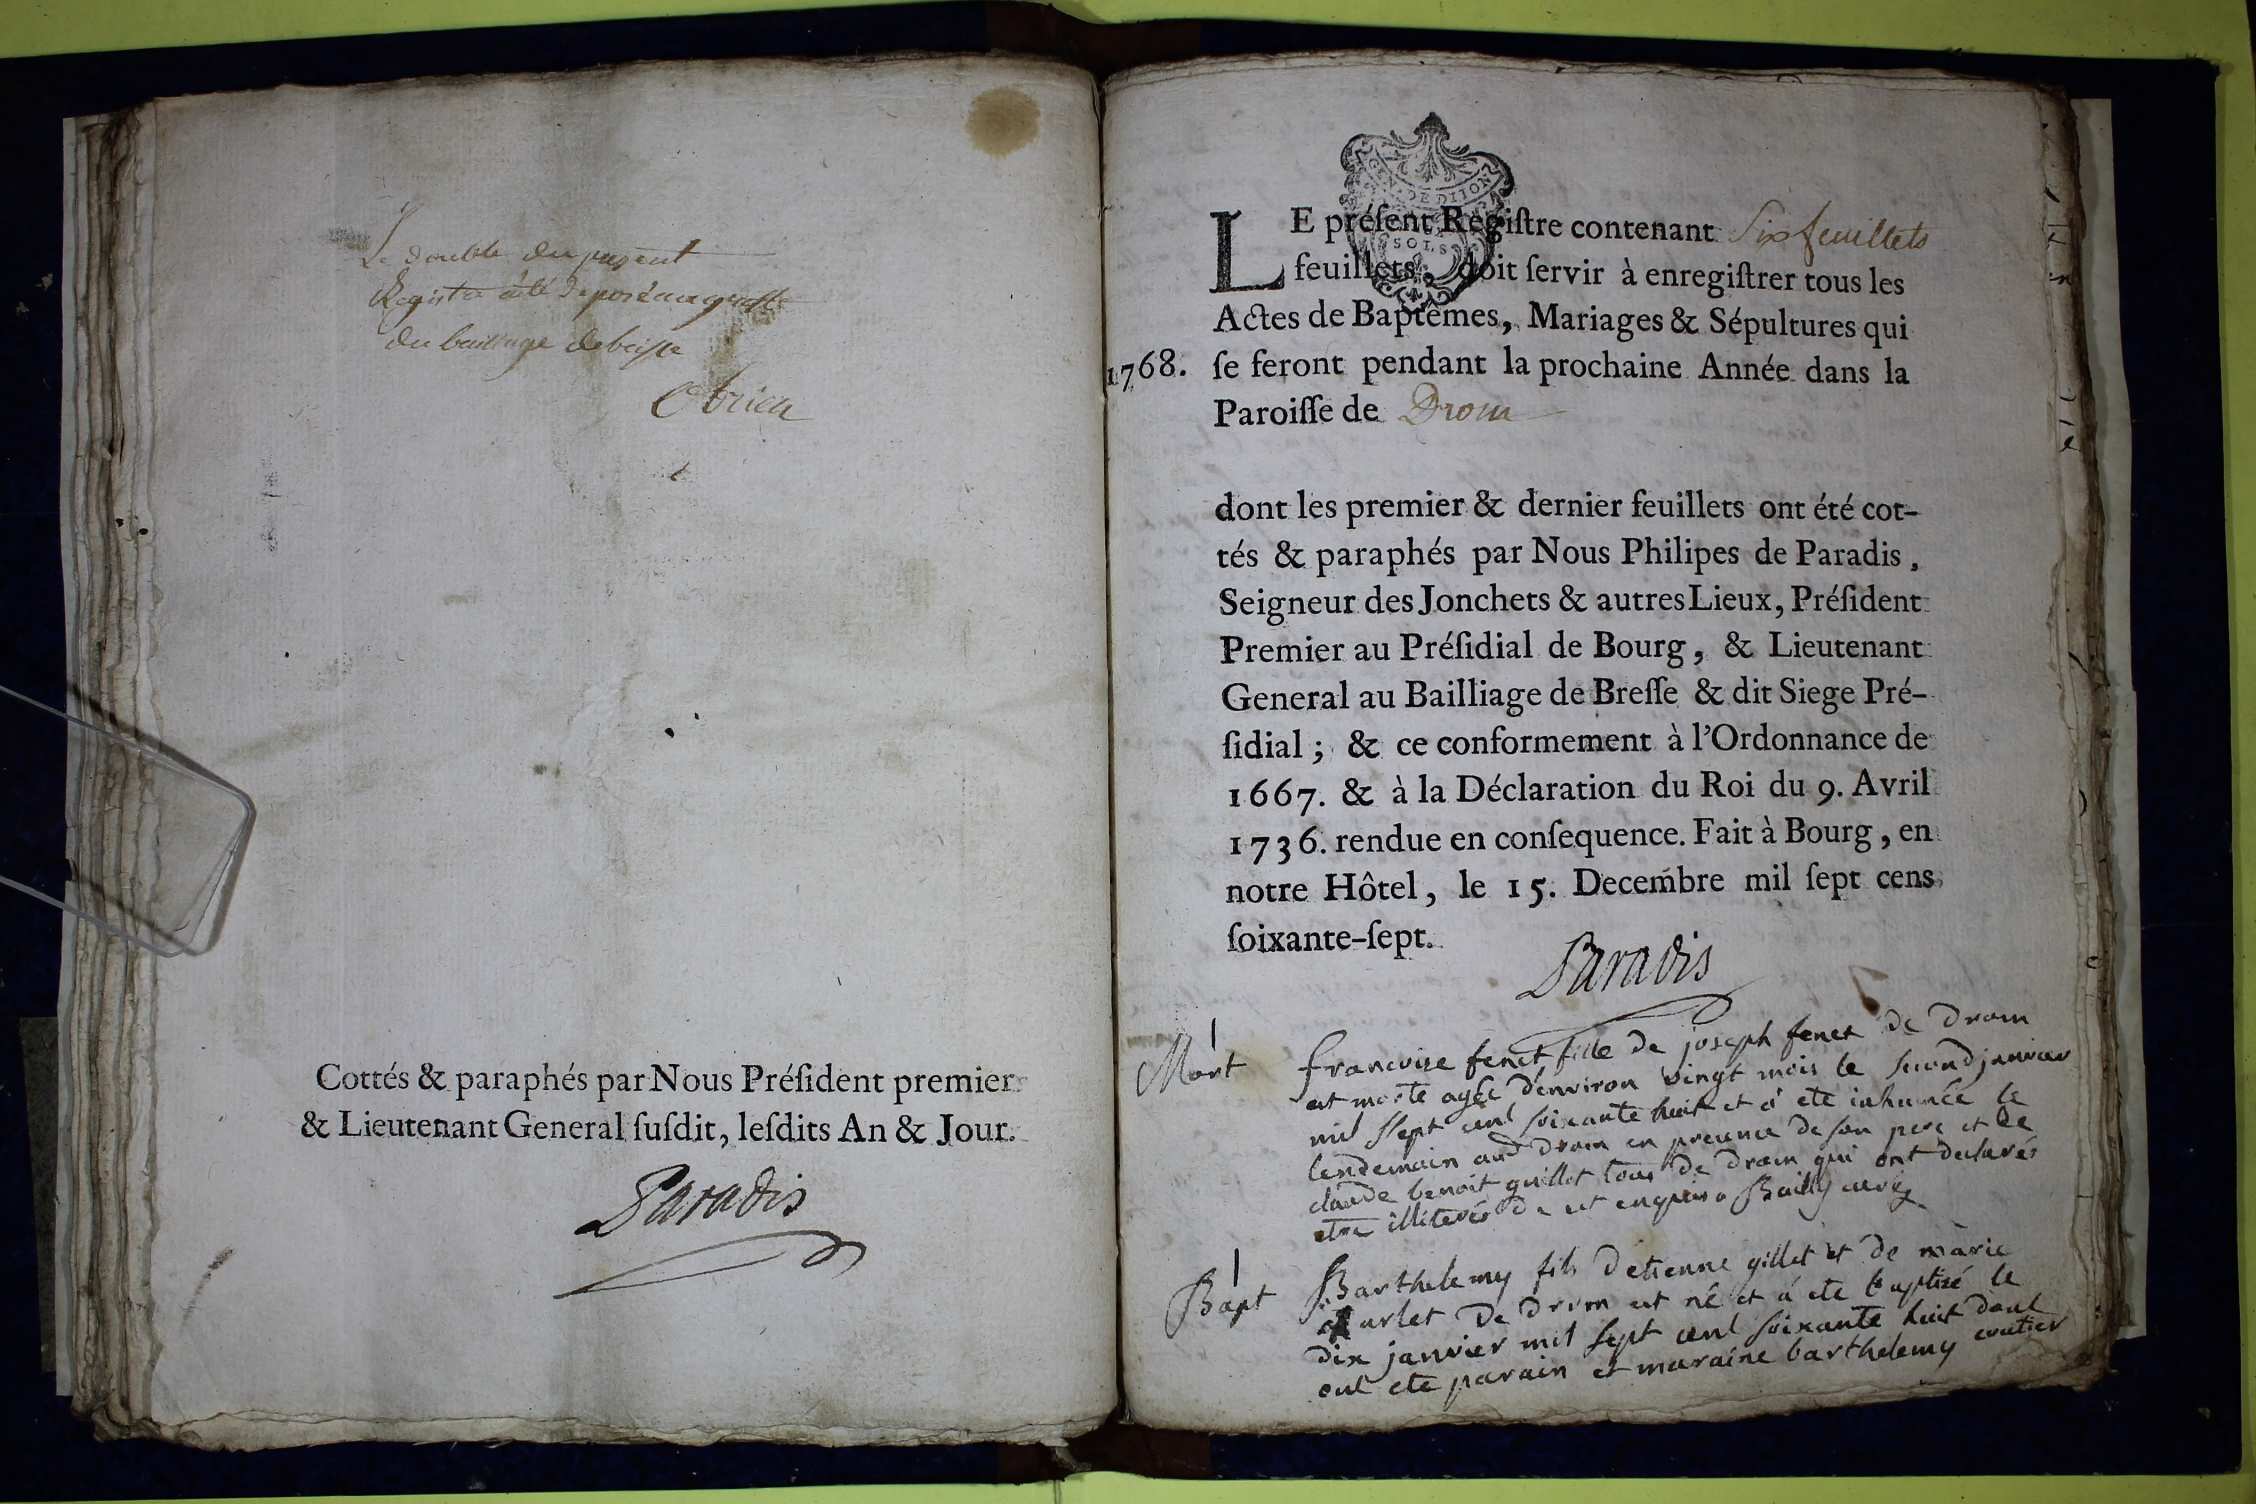 Le double du present
Registre a été deposé au greffe
du bailliage de bresse
Obrien
Cottés & paraphés par Nous Préſident premier
& Lieutenant General ſuſdit, leſdits An & Jour.
Paradis
GEN. DE DIJON
SOLS
LE préſent Regiſtre contenant Six feuillets
feuillets, doit ſervir à enregiſtrer tous les
Actes de Baptêmes, Mariages & Sépultures qui
1768. ſe feront pendant la prochaine Année dans la
Paroiſſe de Drom
dont les premier & dernier feuillets ont été cot-
tés & paraphés par Nous Philipes de Paradis,
Seigneur des Jonchets & autres Lieux, Préſident
Premier au Préſidial de Bourg, & Lieutenant
General au Bailliage de Breſſe & dit Siege Pré-
ſidial; & ce conformement à l'Ordonnance de
1667. & à la Déclaration du Roi du 9. Avril
1736. rendue en conſequence. Fait à Bourg, en
notre Hôtel, le 15. Decembre mil ſept cens
ſoixante-ſept.
Paradis
1
Mort francoise fenet fille de joseph fenet de drom
est morte agée d'environ vingt mois le second janvier
mil sept cent soixante huit et a ete inhumée le
lendemain aud drom en presence de son pere et de
claude benoit guillot tous de drom qui ont declarés
etre illiterés de ce enquis Bailly curé
1
Bapt Barthelemy fils d'etienne gillet et de marie
urlet de drom est né et á ete baptisé le
dix janvier mil sept cent soixante huit dont
ont ete parain et maraine barthelemy